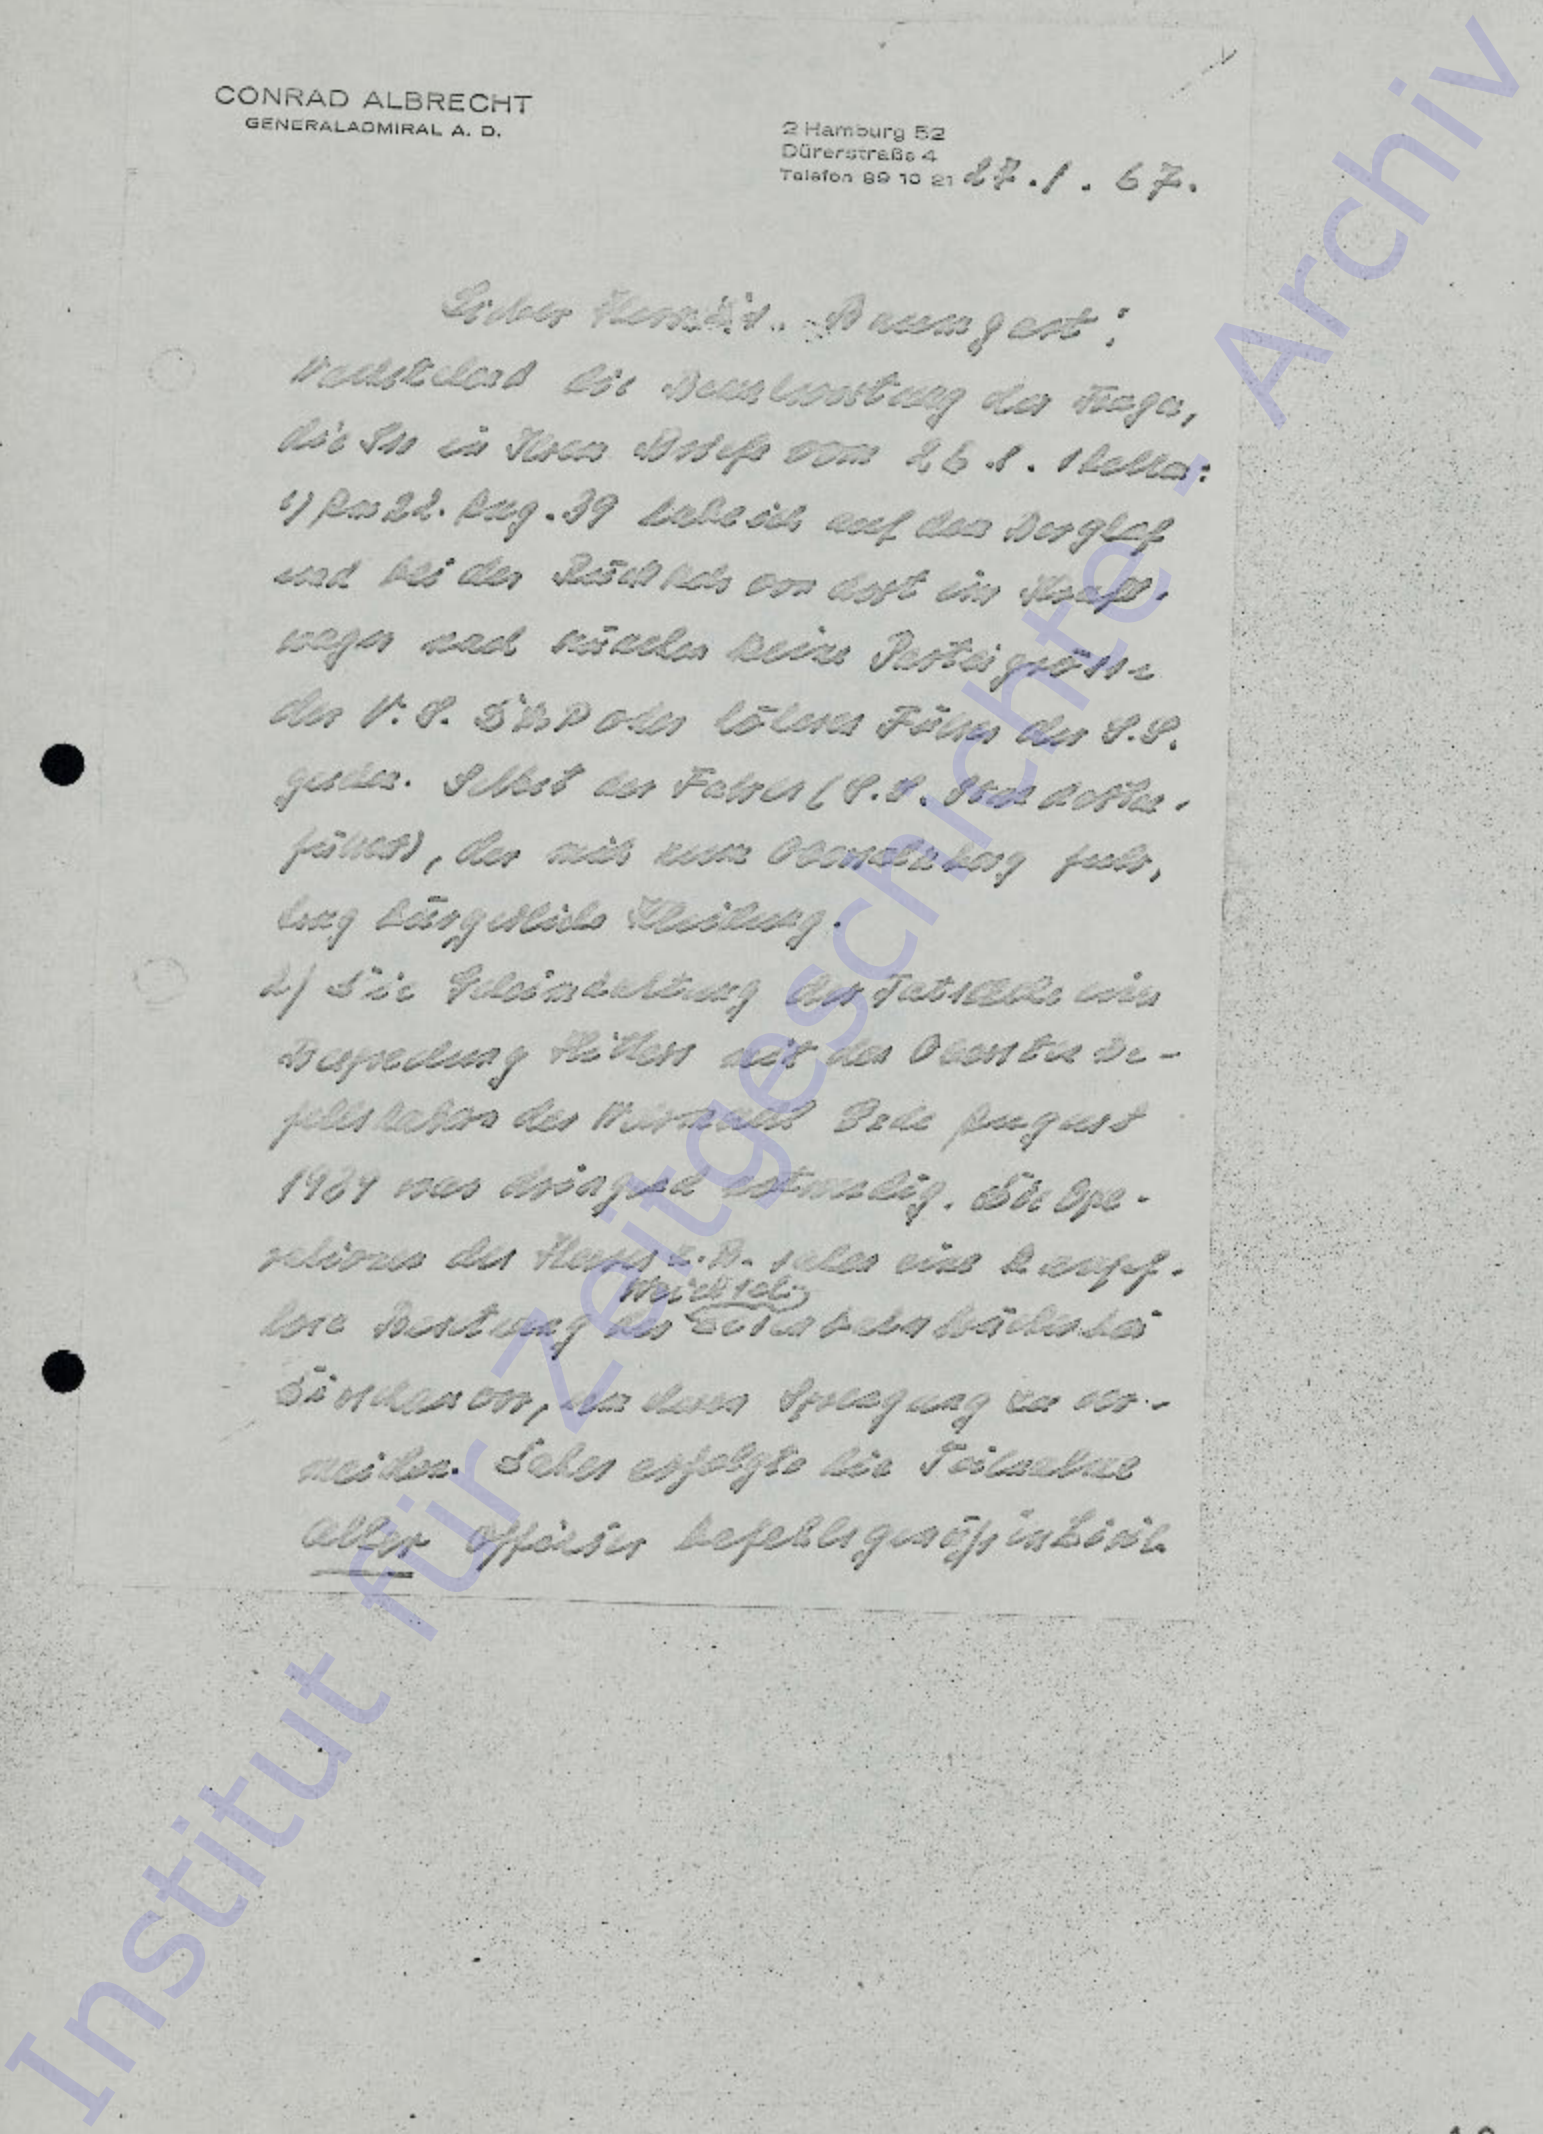 CONRAD ALBRECHT
GENERALADMIRAL A. D.
2 Hamburg 52
Dürerstraße 4
Telefon 89 10 21 27.1.67.
Lieber Herr Dr. Baumgart!
Nachstehend die Beantwortung der Fragen,
die Sie in Ihrem Briefe vom 26.1. stellen:
1) Am 22. Aug. 39 habe ich auf dem Berghof
und bei der Rückkehr von dort im Kraft-
wagen nach München keine Parteigrösse
der N.S.DAP oder höheren Führer der S.S.
gesehen. Selbst der Fahrer (S.S. Standarten-
führer), der mich zum Obersalzberg fuhr,
trug bürgerliche Kleidung.
2) Die Geheimhaltung der Tatsache einer
Besprechung Hitlers mit den Obersten Be-
fehlshabern der Wehrmacht Ende August
1939 war dringend notwendig. Die Ope-
rationen des Heeres z.B. sahen eine kampf-
lose Besetzung der Weichsel-
brücke bei
Dirschau vor, um deren Sprengung zu ver-
meiden. Daher erfolgte die Teilnahme
aller Offiziere befehlsgemäß in Zivil.
Institut für Zeitgeschichte - Archiv